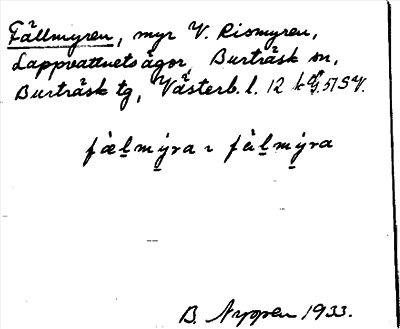 Fällmyren, myr V. Rismyren,
Lappvattnets ägor, Burträsk sn,
Burträsk tg, Västerb. l. 12 51 SV.
fæḻmýra ɿ fàḻmýra
B. Nygren 1933.